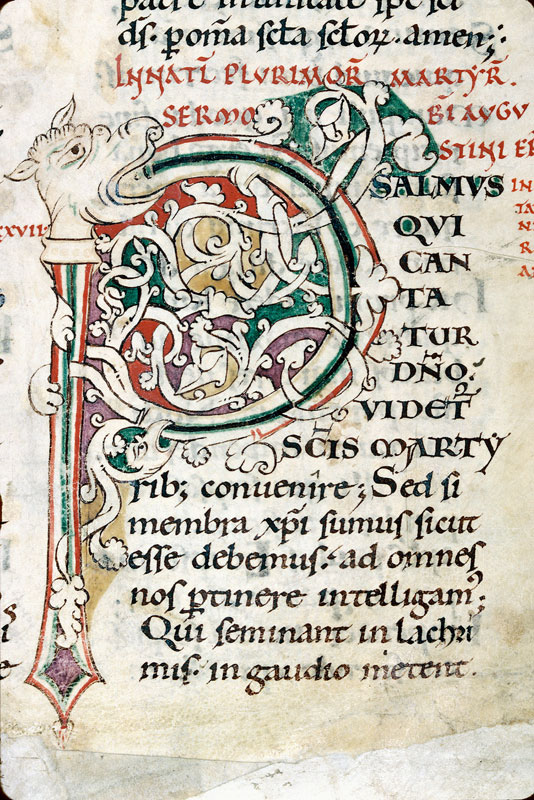 ds. p om̄a scła scłorꝝ. amen;
IN NATL̄ PLURIMOR̄ MARTYR̄.
SERMO BĪ AUGU
STINI EP̄
PSALMUS
QUI
CAN
TA
TUR
DÑO.
VIDET̄
SC̄IS MARTY
rib; convenire; Sed si
membra xp̄i sumus sicut
esse debemus. ad omnes
nos ꝑtinere intelligam᷒;
Qui seminant in lachri
mis. in gaudio metent.